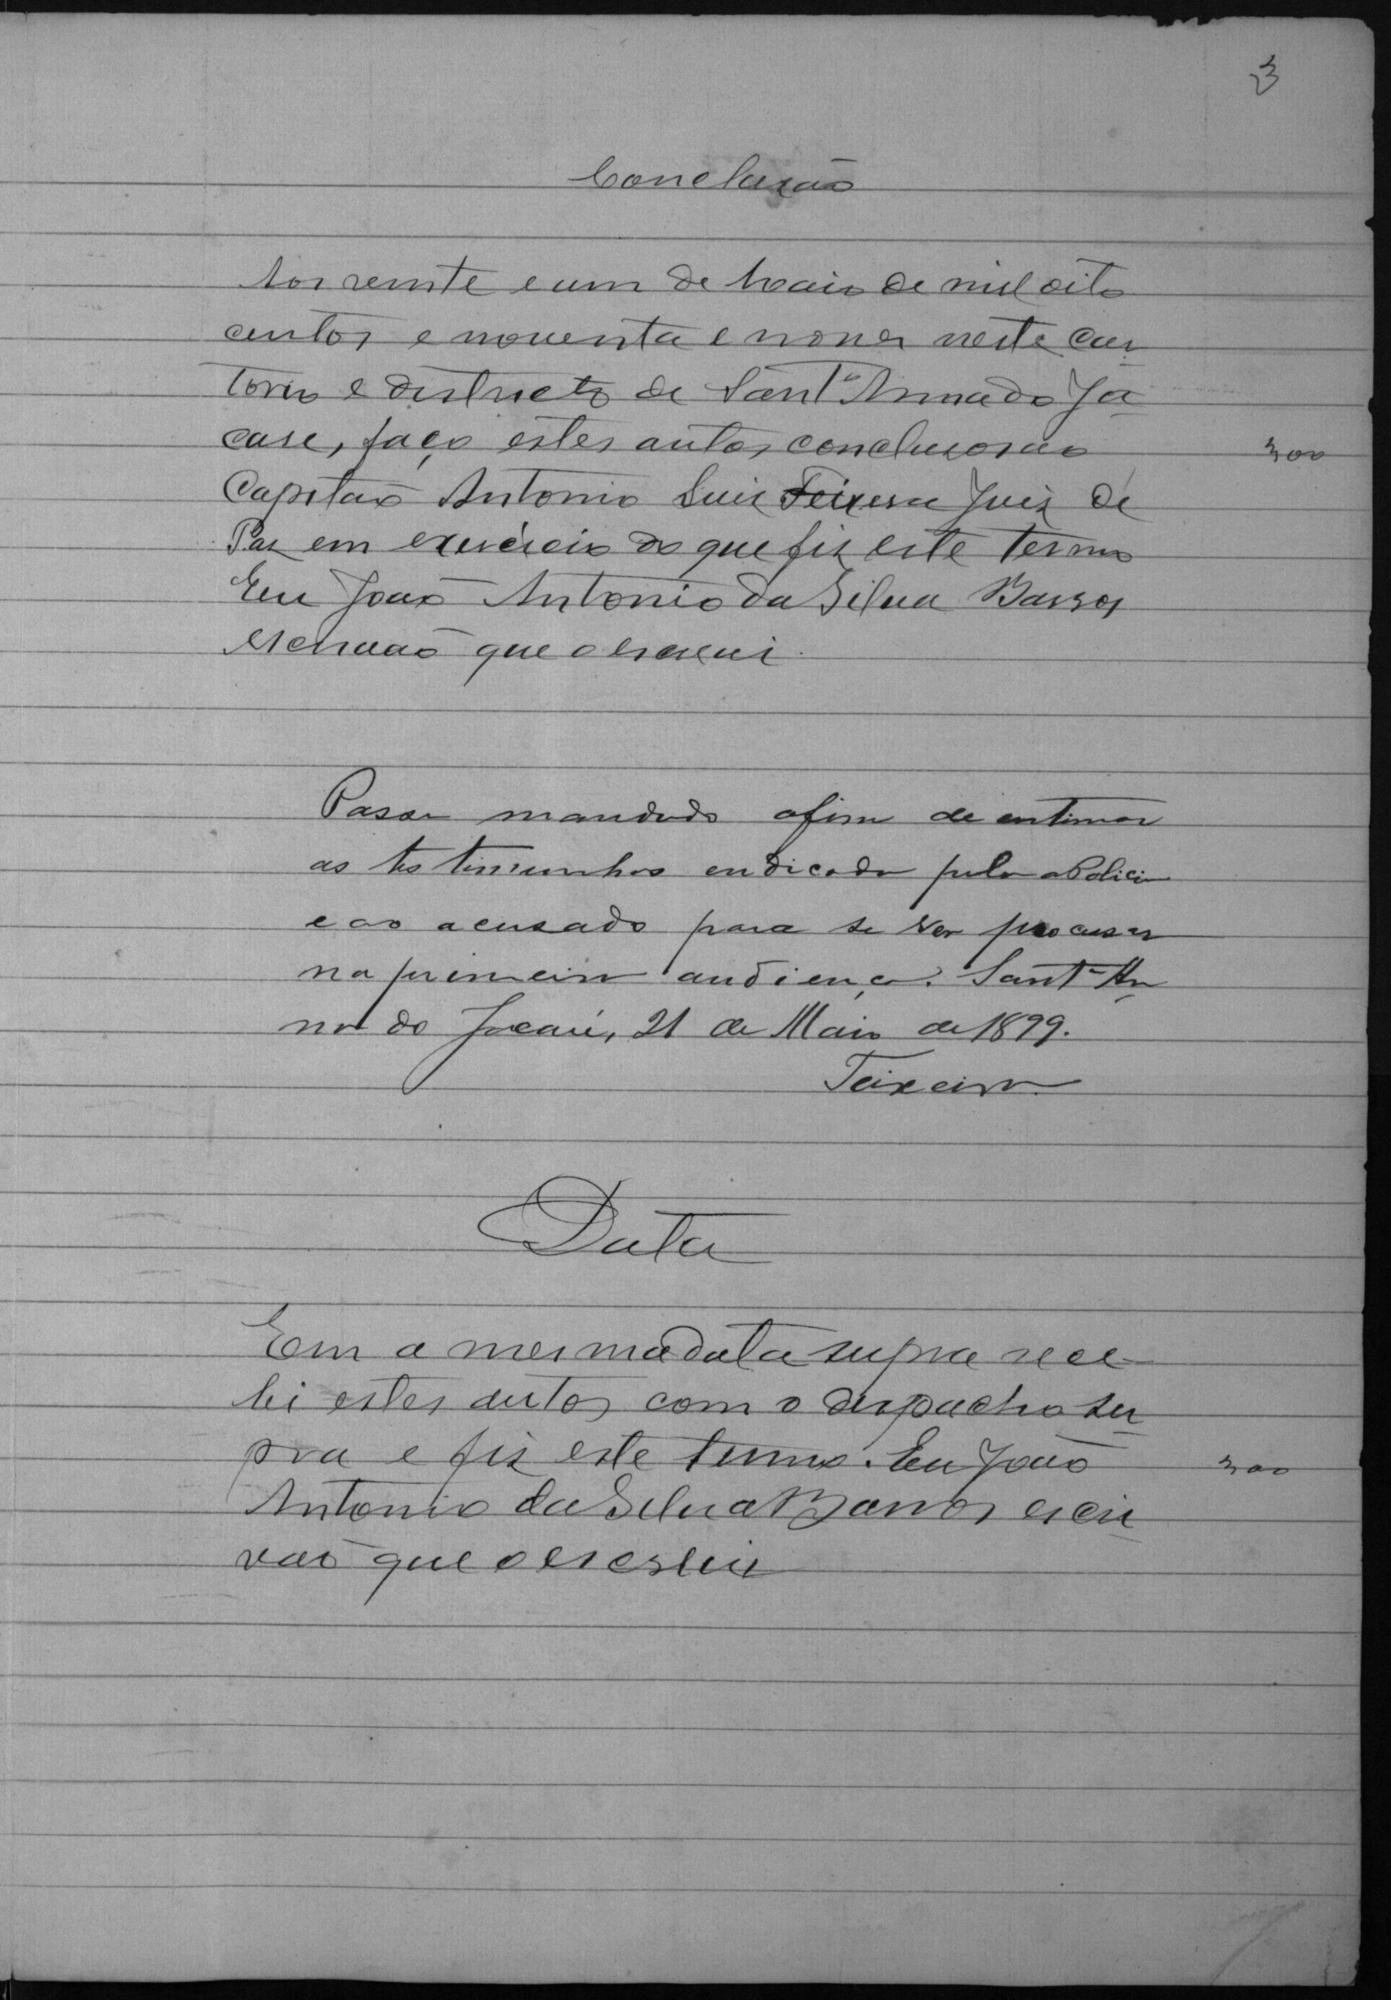 3
Conclusão
Aos vinte e um de Maio de mil oito
centos e noventa e nove nesta car
torio e districto de Sant'Anna do Ja
care, faço estes autos conclusos ao
300
Capitão Antonio Luis Teixeira Juis de
Pas em exercicio do que fis este termo
Eu João Antonio da Silva Barros
escrivão que o escrevi.
Passe mandado afim de entimar
as testimunhas endicada pela a Policia
e ao acusado para se ver processar
na primeira audiença. Sant'An
na do Jacaré, 21 de Maio de 1899.
Teixeira
Data
Em a mesma data supra rece-
bi estes autos com o despacho su
pra e fis este termo. Eu João
300
Antonio da Silva Barros escri
vão que o escrevi